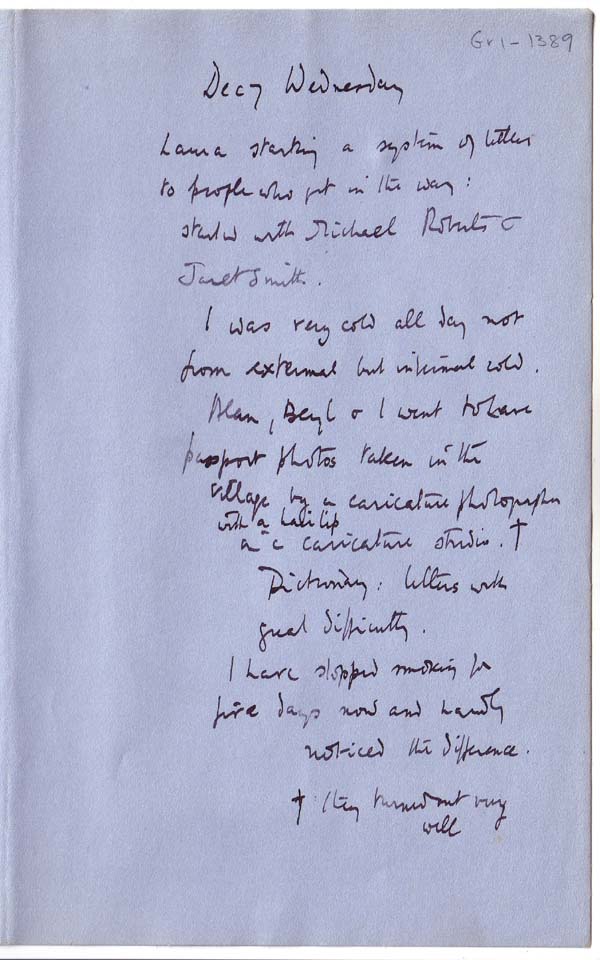 Gr1-1389
Dec 7 Wednesday
Laura starting a system of letters
to people who get in the way:
started with Michael Roberts &
Janet Smith.
I was very cold all day not
from external but internal cold.
Alan, Beryl & I went to have
passport photos taken in the
village by a caricature photographer
with a harelip
a caricature studio. †
Dictionary: letters with
great difficulty.
I have stopped smoking for
five days now and hardly
noticed the difference.
† they turned out very
well